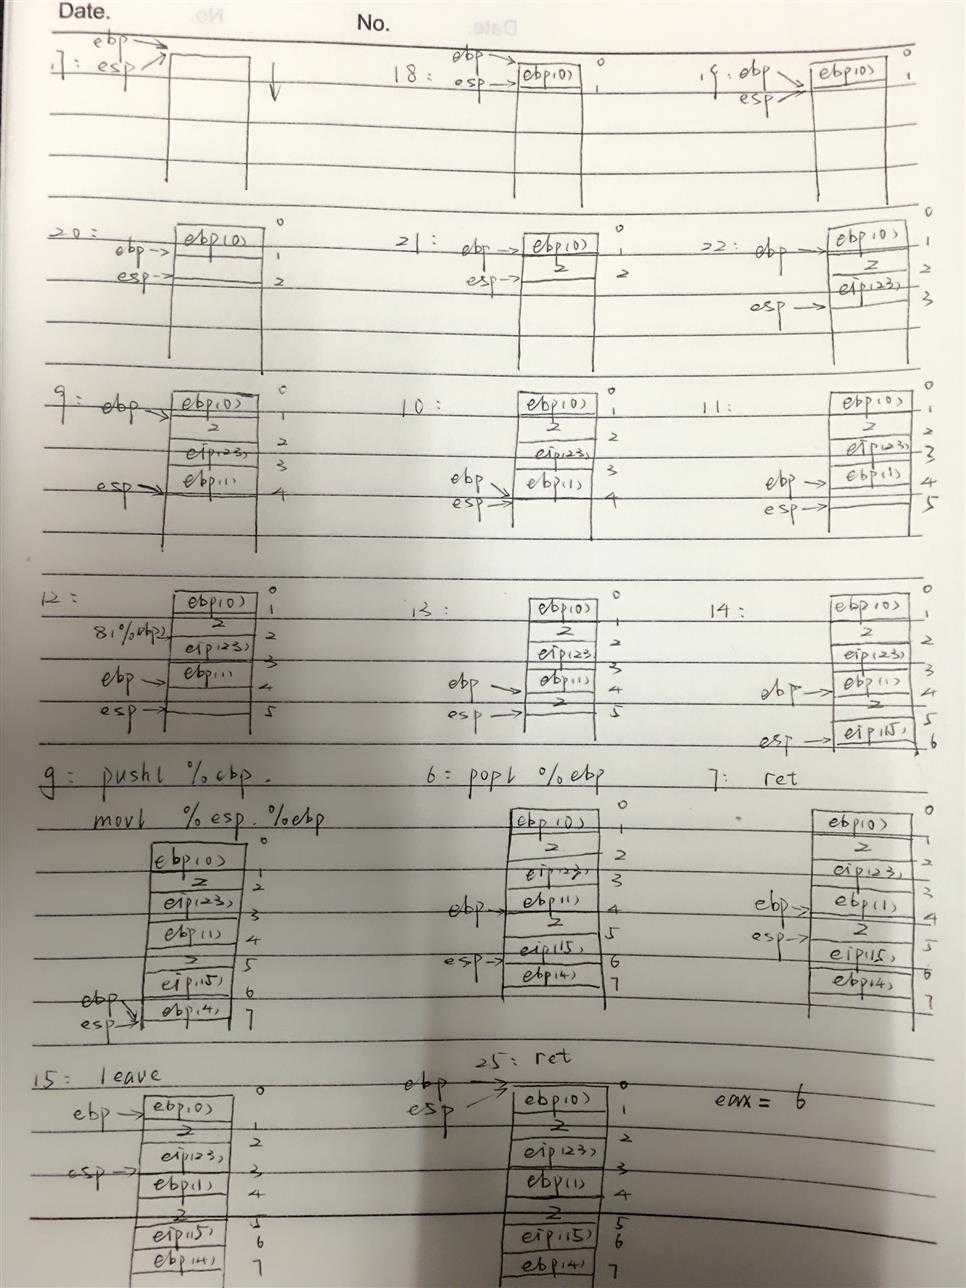 Date.
No.
17:
ebp
esp
18:
ebp
esp
ebp(0)
0
1
19:
ebp
esp
ebp(0)
0
1
20:
ebp
esp
ebp(0)
0
1
2
21:
ebp
esp
ebp(0)
2
1
2
22:
ebp
esp
ebp(0)
2
eip(23)
0
1
2
3
9:
ebp
esp
ebp(0)
2
eip(23)
ebp(1)
0
1
2
3
4
10:
ebp
esp
ebp(0)
2
eip(23)
ebp(1)
0
1
2
3
4
11:
ebp
esp
ebp(0)
2
eip(23)
ebp(1)
0
1
2
3
4
5
12:
8(%ebp)
ebp
esp
ebp(0)
2
eip(23)
ebp(1)
0
1
2
3
4
5
13:
ebp
esp
ebp(0)
2
eip(23
ebp(1)
2
0
1
2
3
4
5
14:
ebp
esp
ebp(0)
2
eip(23)
ebp(1)
2
eip(15)
0
1
2
3
4
5
6
9: pushl %ebp.
movl %esp. %ebp
ebp
esp
ebp(0)
2
eip(23)
ebp(1)
2
eip(15)
ebp(4)
0
1
2
3
4
5
6
7
6: popl %ebp
ebp
esp
ebp(0)
2
eip(23)
ebp(1)
2
eip(15)
ebp(4)
0
1
2
3
4
5
6
7
7: ret
ebp
esp
ebp(0)
2
eip(23)
ebp(1)
2
eip(15)
ebp(4)
0
1
2
3
4
5
6
7
15: leave
ebp
esp
ebp(0)
2
eip(23)
ebp(1)
2
eip(15)
ebp(4)
0
1
2
3
4
5
6
7
25: ret
ebp
esp
ebp(0)
2
eip(23)
ebp(1)
2
eip(15)
ebp(4)
0
1
2
3
4
5
6
7
eax = 6